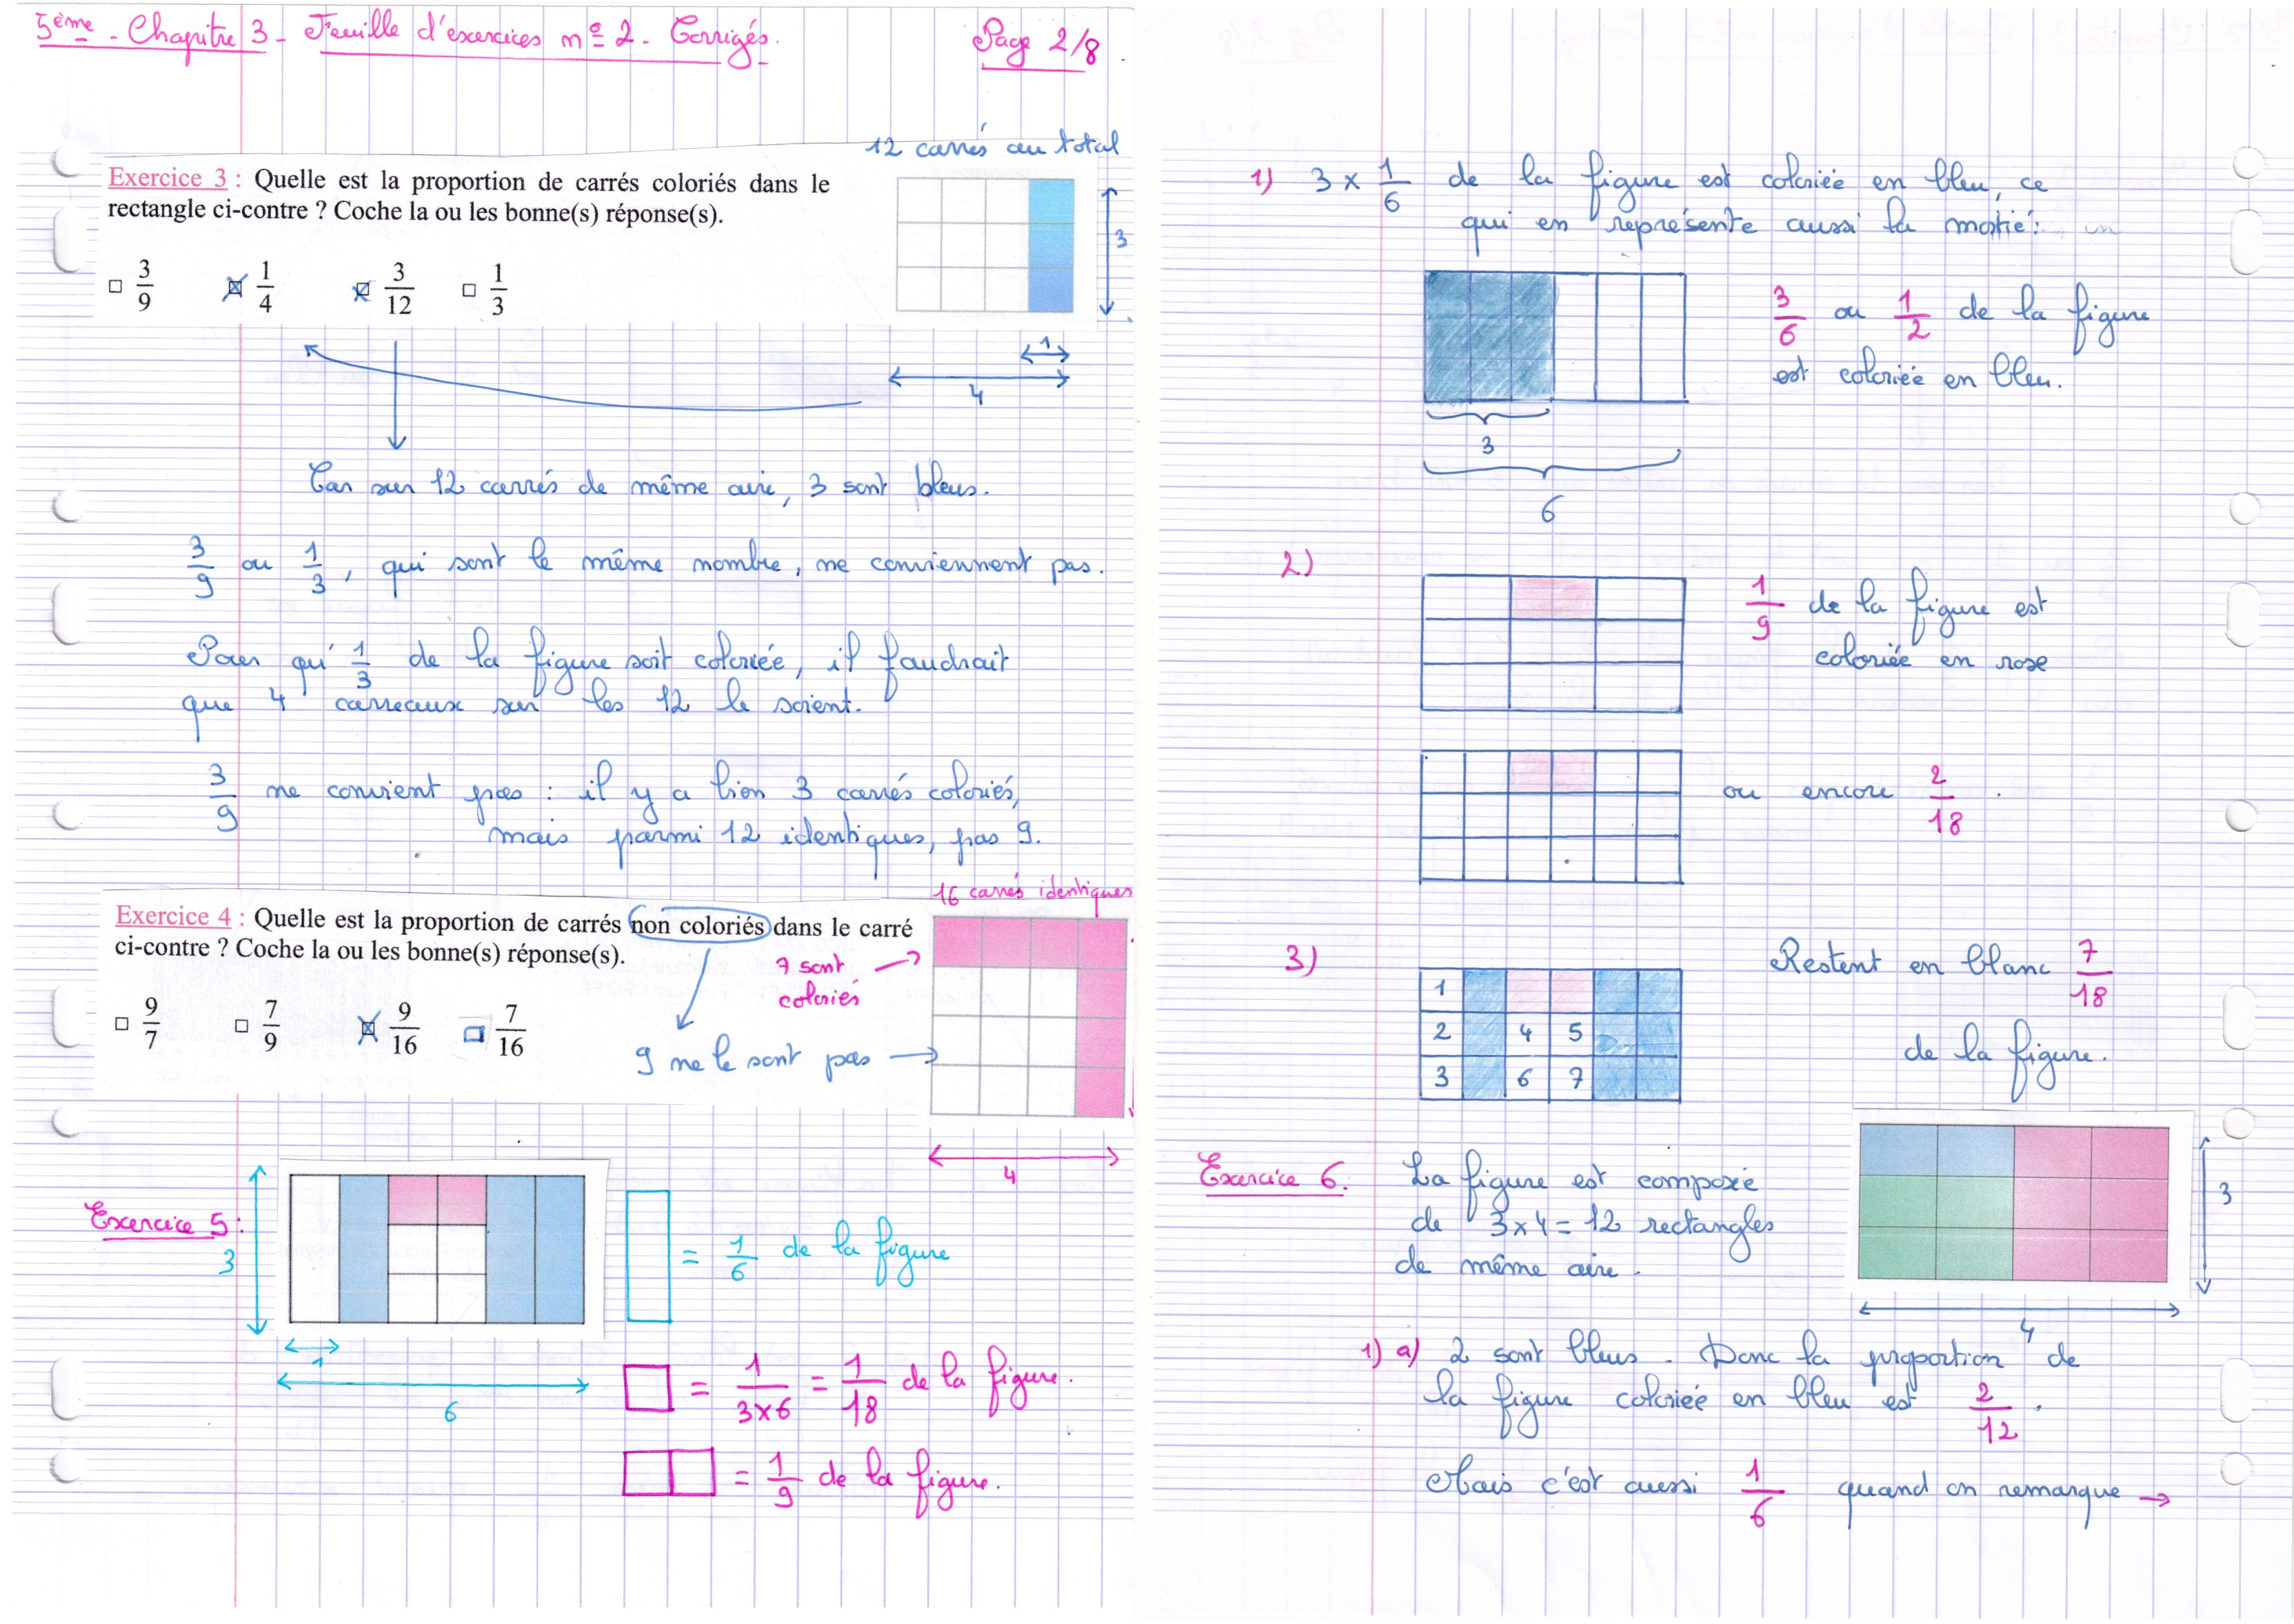 5ème - Chapitre 3 - Feuille d'exercices n° 2 - Corrigés.
Page 2/8
12 carrés au total
Exercice 3 : Quelle est la proportion de carrés coloriés dans le
rectangle ci-contre ? Coche la ou les bonne(s) réponse(s).
3/9 1/4 3/12 1/3
3
1
4
Car sur 12 carrés de même aire, 3 sont bleus.
3/9 ou 1/3, qui sont le même nombre, ne conviennent pas.
Pour qu' 1/3 de la figure soit coloriée, il faudrait
que 4 carreaux sur les 12 le soient.
3/9 ne convient pas : il y a bien 3 carrés coloriés,
mais parmi 12 identiques, pas 9.
16 carrés identiques
Exercice 4 : Quelle est la proportion de carrés non coloriés dans le carré
ci-contre ? Coche la ou les bonne(s) réponse(s).
7 sont →
coloriés
9/7 7/9 9/16 7/16
9 ne le sont pas →
4
Exercice 5 :
3
1
6
= 1/6 de la figure
= 1/3×6 = 1/18 de la figure.
= 1/9 de la figure.
1) 3 × 1/6 de la figure est coloriée en bleu, ce
qui en représente aussi la moitié :
3/6 ou 1/2 de la figure
est coloriée en bleu.
3
6
2)
1/9 de la figure est
coloriée en rose
ou encore 2/18.
3)
1
2 4 5
3 6 7
Restent en blanc 7/18
de la figure.
Exercice 6. La figure est composée
de 3×4 = 12 rectangles
de même aire.
3
4
1) a) 2 sont bleus. Donc la proportion de
la figure coloriée en bleu est 2/12.
Mais c'est aussi 1/6 quand on remarque →